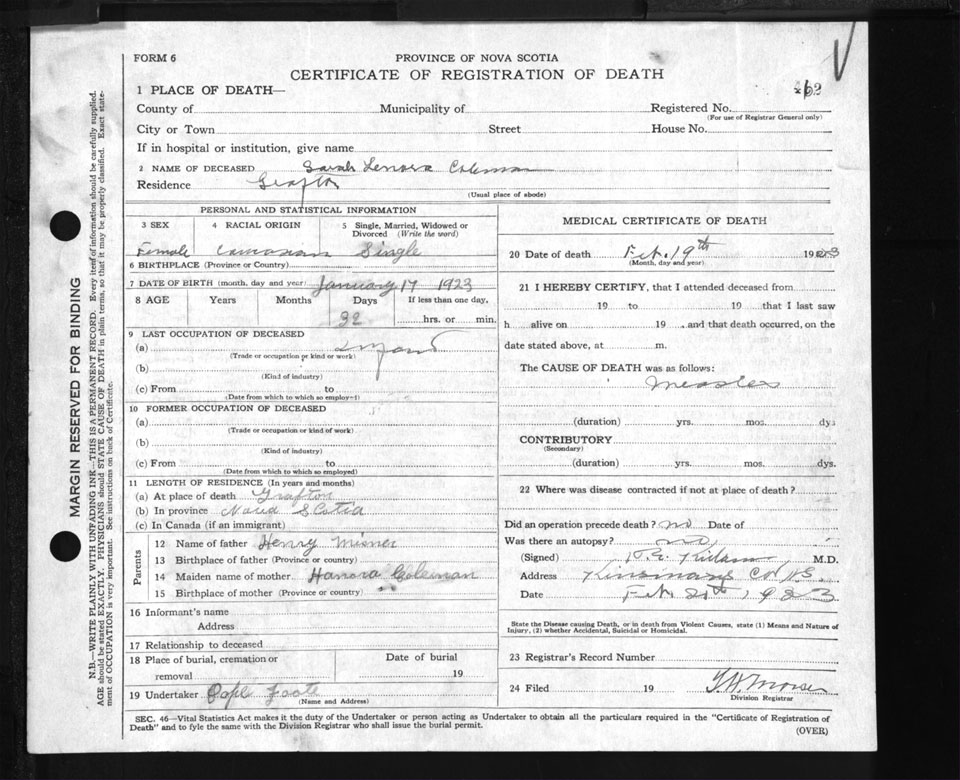 FORM 6
PROVINCE OF NOVA SCOTIA
CERTIFICATE OF REGISTRATION OF DEATH
1 PLACE OF DEATH—
County of Municipality of Registered No.
(For use of Registrar General only)
City or Town Street House No.
If in hospital or institution, give name
2 NAME OF DECEASED Sarah Lenora Coleman
Residence Grafton
(Usual place of abode)
PERSONAL AND STATISTICAL INFORMATION
3 SEX 4 RACIAL ORIGIN 5 Single, Married, Widowed or Divorced (Write the word)
Female Single
6 BIRTHPLACE (Province or Country)
7 DATE OF BIRTH (month, day and year) January 17 1923
8 AGE Years Months Days If less than one day,
32 hrs. or min.
9 LAST OCCUPATION OF DECEASED
(a) Infant
(Trade or occupation or kind or work)
(b)
(Kind of industry)
(c) From to
(Date from which to which so employed)
10 FORMER OCCUPATION OF DECEASED
(a)
(Trade or occupation or kind of work)
(b)
(Kind of industry)
(c) From to
(Date from which to which so employed)
11 LENGTH OF RESIDENCE (In years and months)
(a) At place of death Grafton
(b) In province Nova Scotia
(c) In Canada (if an immigrant)
Parents
12 Name of father Henry Misner
13 Birthplace of father (Province or country)
14 Maiden name of mother Hanora Coleman
15 Birthplace of mother (Province or country)
16 Informant's name
Address
17 Relationship to deceased
18 Place of burial, cremation or removal Date of burial 19
19 Undertaker Foote
(Name and Address)
MEDICAL CERTIFICATE OF DEATH
20 Date of death Feb. 19th 1923
(Month, day and year)
21 I HEREBY CERTIFY, that I attended deceased from
19 to 19 that I last saw
h alive on 19 , and that death occurred, on the
date stated above, at m.
The CAUSE OF DEATH was as follows:
Measles
(duration) yrs. mos. dys
CONTRIBUTORY
(Secondary)
(duration) yrs. mos. dys.
22 Where was disease contracted if not at place of death?
Did an operation precede death? no Date of
Was there an autopsy? no
(Signed) M.D.
Address Kinsmans Co NS.
Date Feb 20th 1923
State the Disease causing Death, or in death from Violent Causes, state (1) Means and Nature of
Injury, (2) whether Accidental, Suicidal or Homicidal.
23 Registrar's Record Number
24 Filed 19
Division Registrar
SEC. 46—Vital Statistics Act makes it the duty of the Undertaker or person acting as Undertaker to obtain all the particulars required in the "Certificate of Registration of
Death" and to fyle the same with the Division Registrar who shall issue the burial permit.
(OVER)
MARGIN RESERVED FOR BINDING
N.B.—WRITE PLAINLY WITH UNFADING INK—THIS IS A PERMANENT RECORD. Every item of information should be carefully supplied.
AGE should be stated EXACTLY. PHYSICIANS should STATE CAUSE OF DEATH in plain terms, so that it may be properly classified. Exact statement
of OCCUPATION is very important. See instructions on back of Certificate.